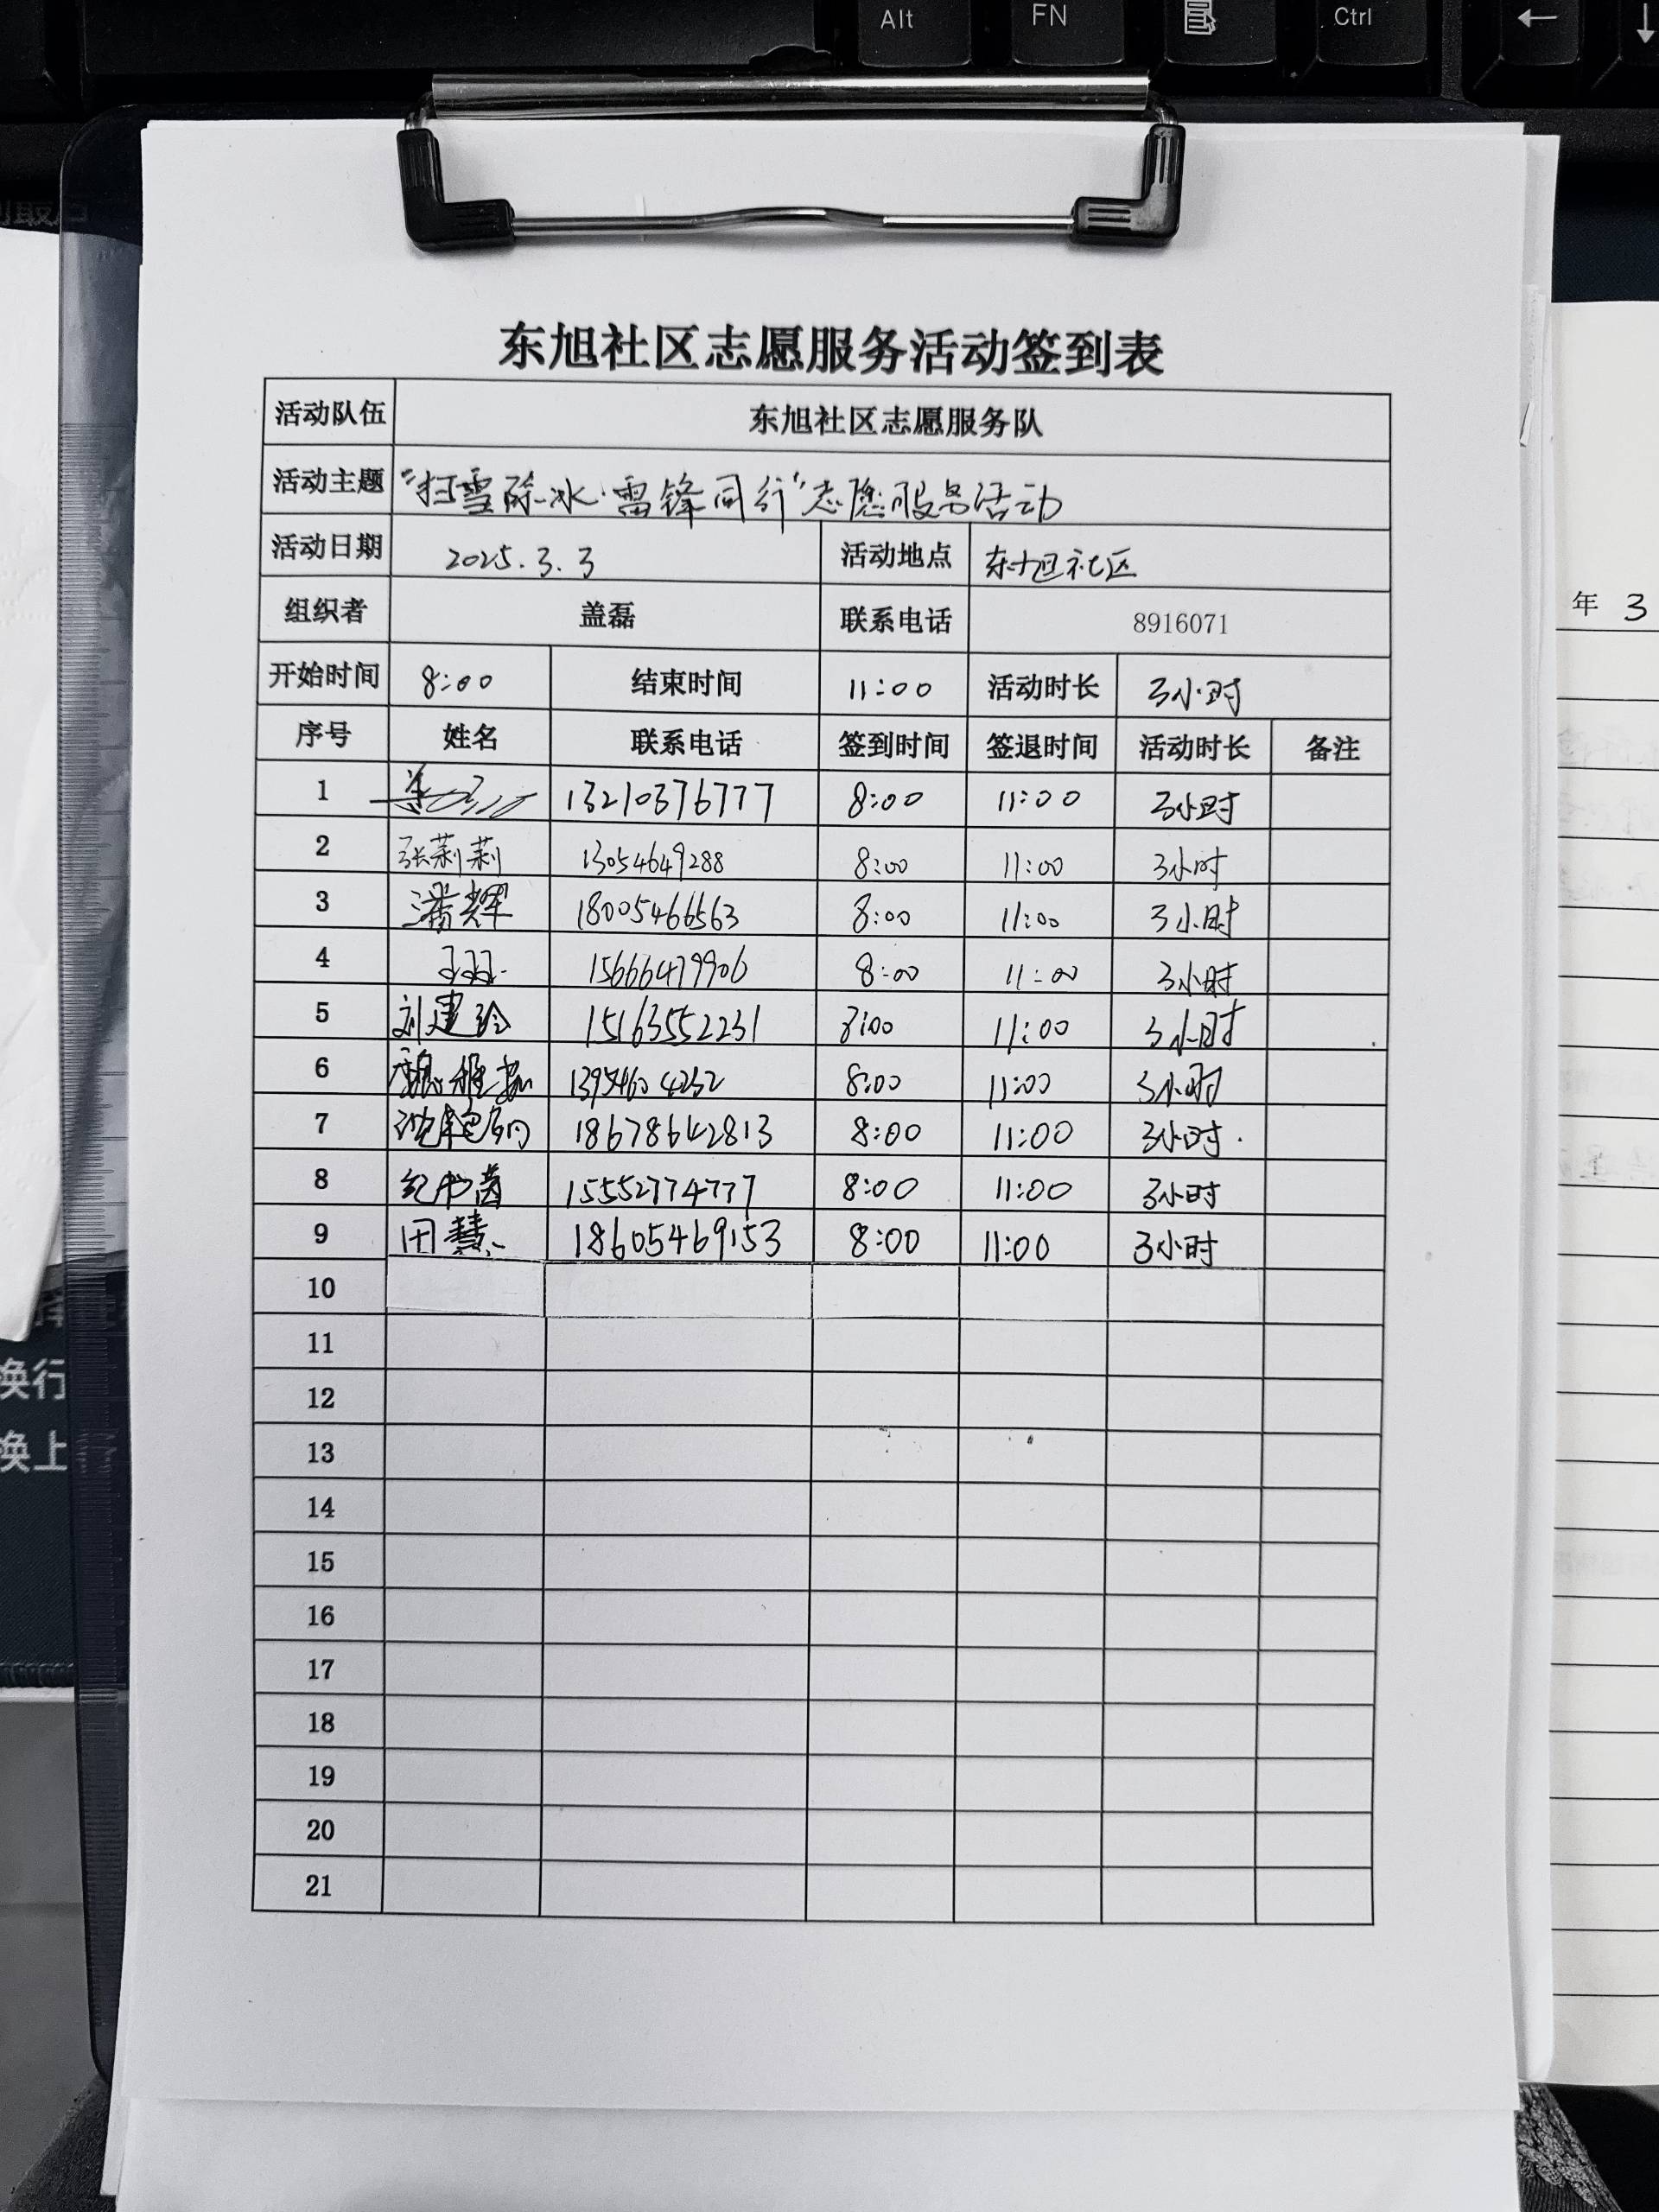 Alt FN Ctrl ← ↓
东旭社区志愿服务活动签到表
活动队伍 东旭社区志愿服务队
活动主题 "扫雪除冰·雷锋同行"志愿服务活动
活动日期 2025.3.3 活动地点 东旭社区
组织者 盖磊 联系电话 8916071
年 3
开始时间 8:00 结束时间 11:00 活动时长 3小时
序号 姓名 联系电话 签到时间 签退时间 活动时长 备注
1 13210376777 8:00 11:00 3小时
2 张莉莉 13054649288 8:00 11:00 3小时
3 潘辉 18005466563 8:00 11:00 3小时
4 15666479906 8:00 11:00 3小时
5 刘建玲 15163552231 8:00 11:00 3小时
6 13954604232 8:00 11:00 3小时
7 18678642813 8:00 11:00 3小时.
8 纪书茵 15552774777 8:00 11:00 3小时
9 田慧 18605469153 8:00 11:00 3小时
10
11
换行
12
换上
13
14
15
16
17
18
19
20
21